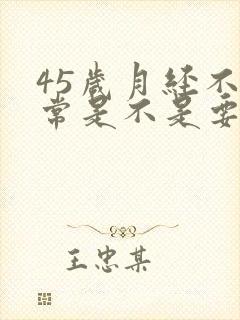 45歲月经不
常是不是要
王忠某